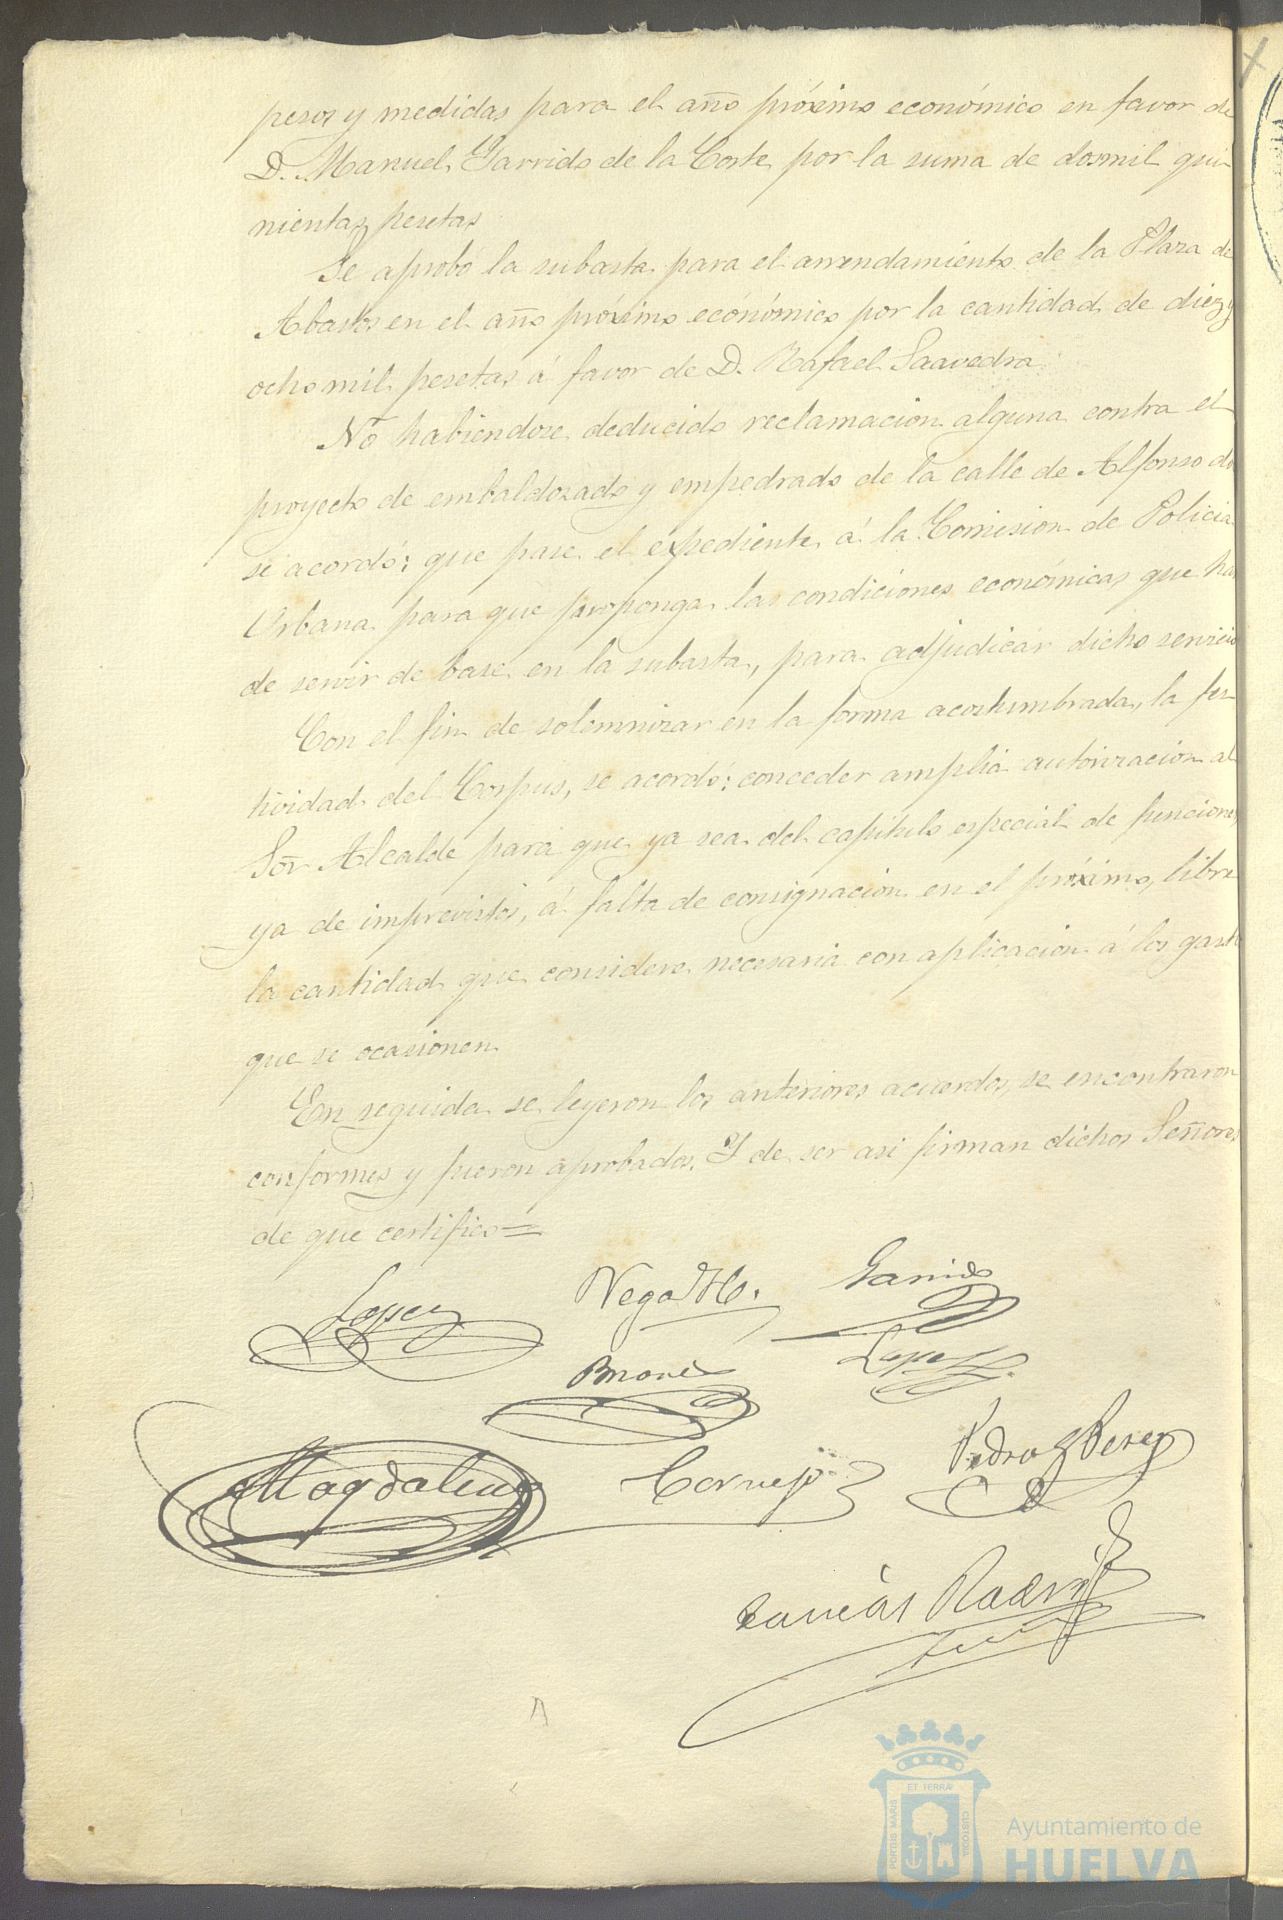 pesos y medidas para el año próximo económico en favor de
D. Manuel Garrido de la Corte por la suma de dosmil qui-
nientas pesetas
Se aprobó la subasta para el arrendamiento de la Plaza de
Abastos en el año próximo económico por la cantidad de diez y
ocho mil pesetas á favor de D. Rafael Saavedra.
No habiendose deducido reclamacion alguna contra el
proyecto de embaldosado y empedrado de la calle de Alfonso doce
se acordó; que pase el expediente á la Comision de Policia
Urbana para que proponga las condiciones económicas que han
de servir de base en la subasta, para adjudicar dicho servicio
Con el fin de solemnizar en la forma acostumbrada, la fes-
tividad del Corpus, se acordó; conceder amplia autorizacion al
Sor. Alcalde para que ya sea del capitulo especial de funciones,
ya de imprevistos, á falta de consignacion en el próximo, libre
la cantidad que considere necesaria con aplicacion á los gastos
que se ocasionen.
En seguida se leyeron los anteriores acuerdos, se encontraron
conformes y fueron aprobados. Y de ser asi firman dichos Señores
de que certifico=
Lopez
Vega
Garrido
Lopez
Magdalena
Cornejo
Pedro Perez
Rodrig
A
PORTUS MARIS ET TERRAE CUSTODIA
Ayuntamiento de
HUELVA